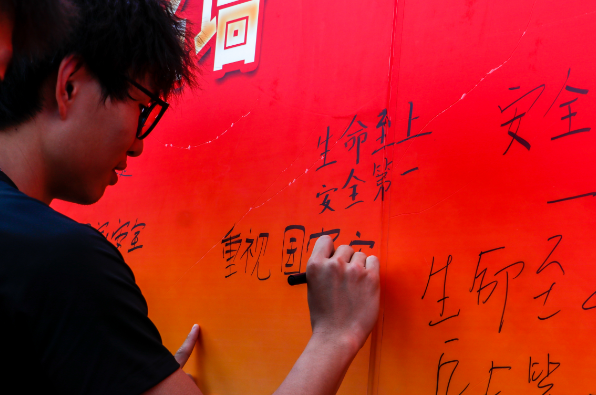 墙
生命至上
安全第一
安全
一
安全
重视国
生命至